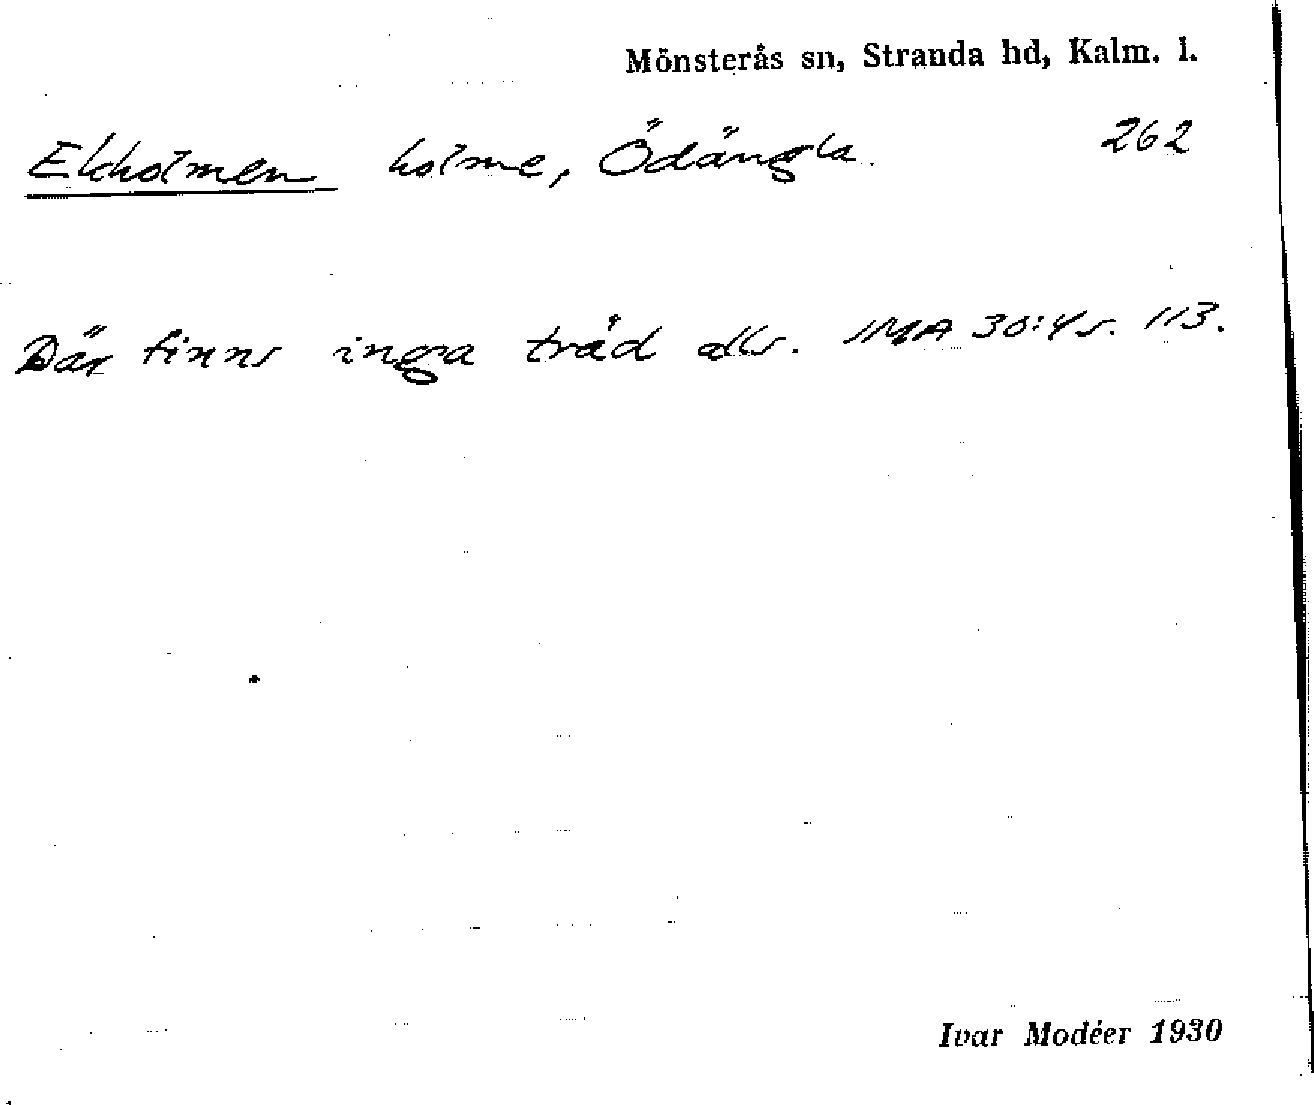 Mönsterås sn, Stranda hd, Kalm. l.
Ekholmen holme, Ödängla. 262
Där finns inga träd alls. IMA 30:4 s. 113.
Ivar Modéer 1930